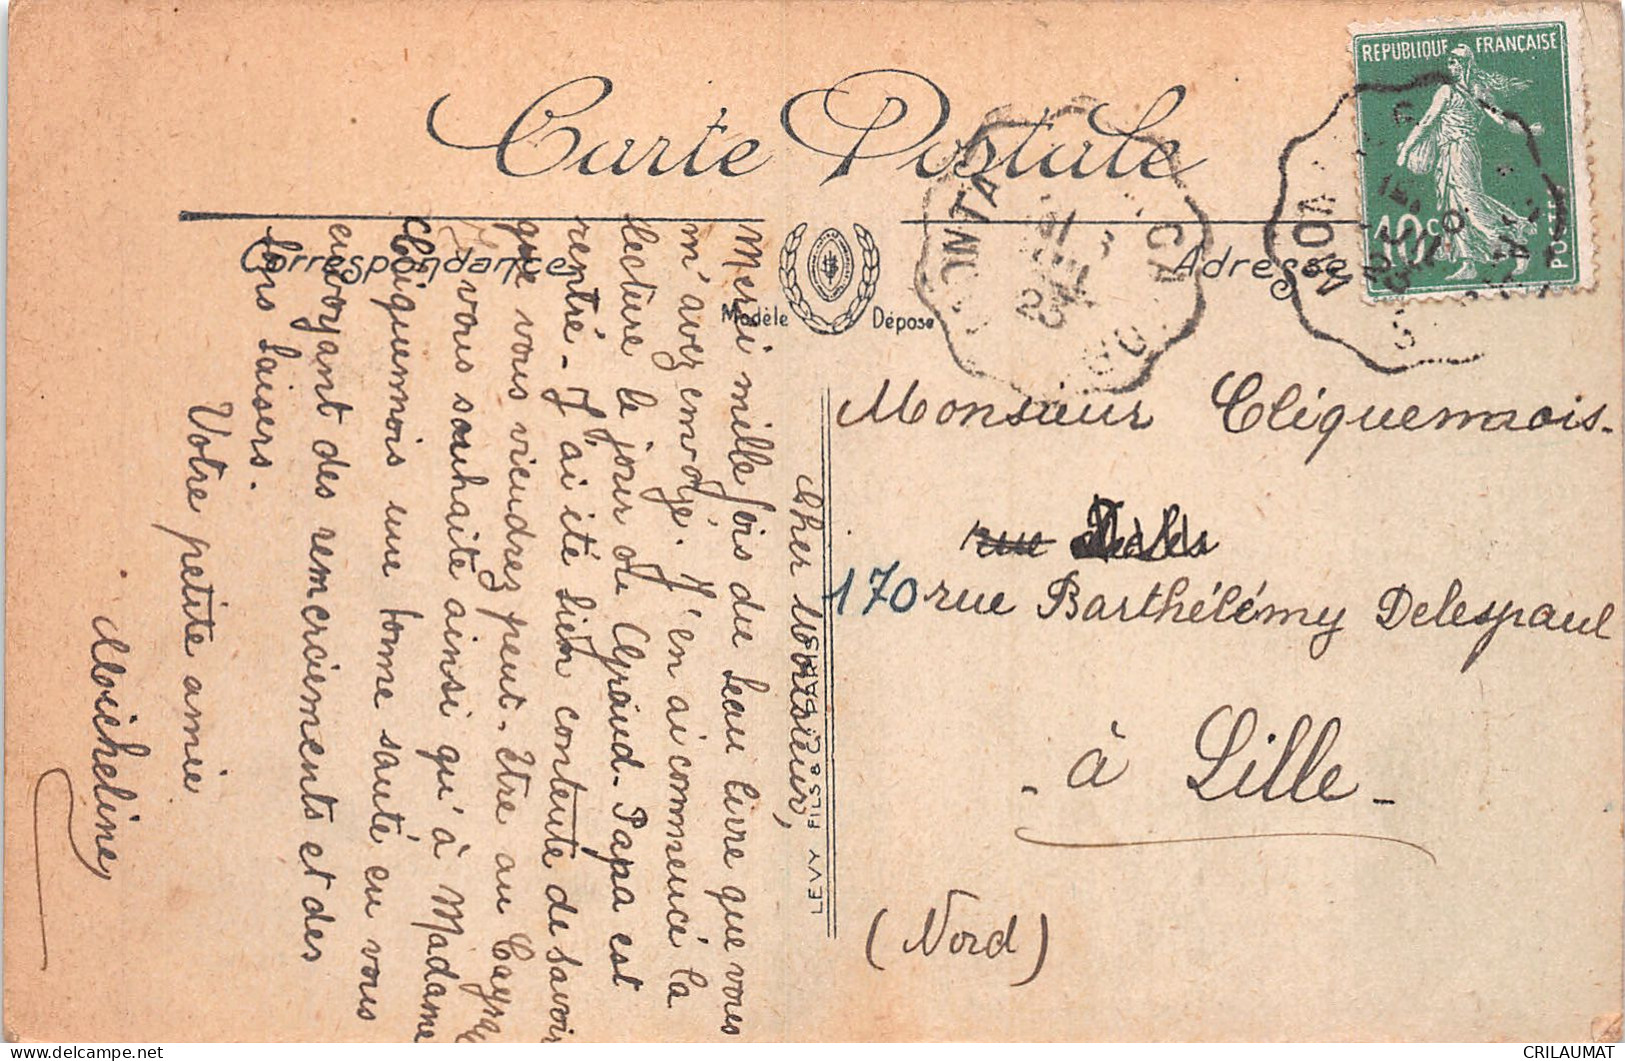 Carte Postale
Correspondance
Adresse
Modèle Déposé
REPUBLIQUE FRANÇAISE
10c
POSTE
Cher Monsieur,
Merci mille fois du beau livre que vous
m'avez envoyé. J'en ai commencé la
lecture le jour du Papa est
rentré - J'ai été bien contente de savoir
que vous viendrez peut-être au Cayeux
Je vous souhaite ainsi qu'à Madame
Cliquennois une bonne santé en vous
envoyant des remerciements et des
bons baisers.
Votre petite amie
Micheline
LEVY FILS & Cie PARIS
Monsieur Cliquennois.
rue
170 rue Barthélémy Delespaul
- à Lille -
(Nord)
CRILAUMAT